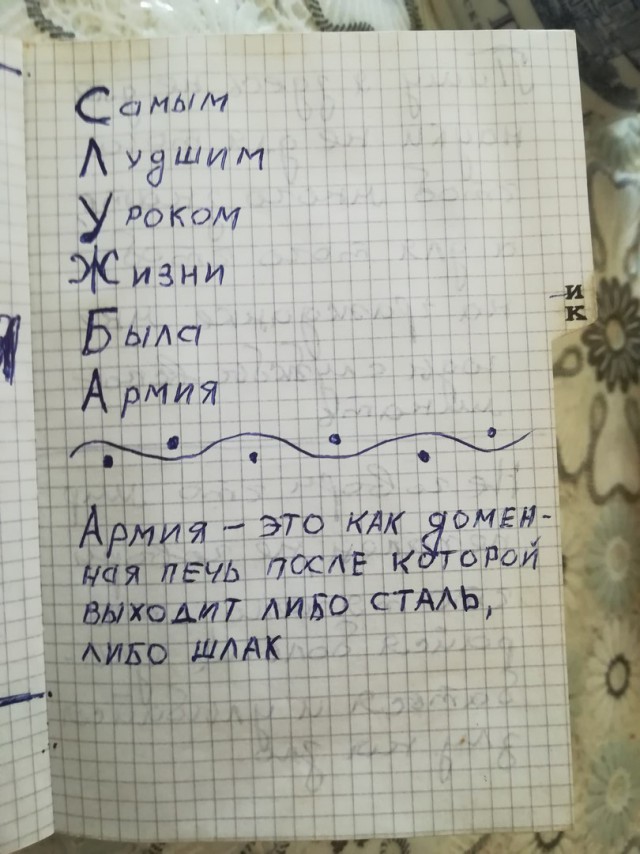 Самым
Лудшим
Уроком
Жизни
Была
Армия
Армия – это как домен-
ная печь после которой
выходит либо сталь,
либо шлак
и
к